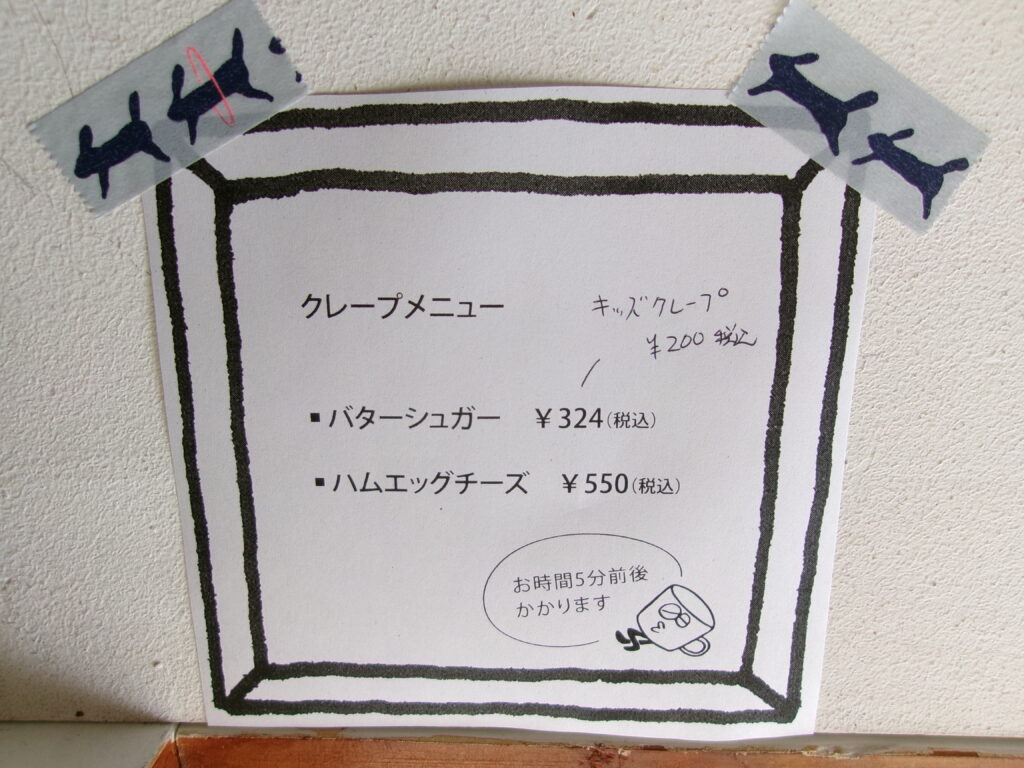 クレープメニュー
キッズクレープ
¥200 税込
▪バターシュガー ¥324(税込)
▪ハムエッグチーズ ¥550(税込)
お時間5分前後
かかります